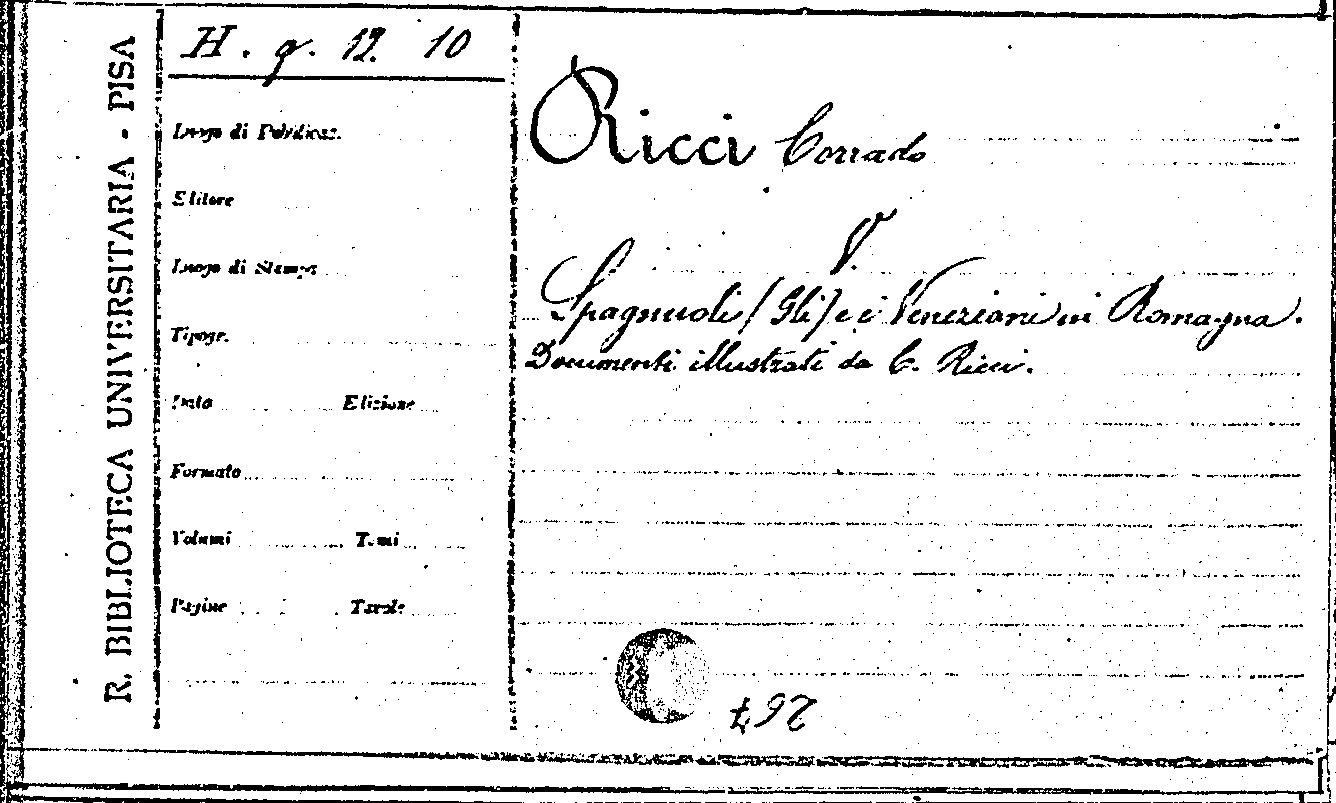 R. BIBLIOTECA UNIVERSITARIA - PISA
H. q. 12. 10
Luogo di Pubblicaz.
Editore
Luogo di Stampa
Tipogr.
Data Edizione
Formato
Volumi Tomi
Pagine Tavole
Ricci Corrado
V.
Spagnuoli (Gli) e i Veneziani in Romagna.
Documenti illustrati da C. Ricci.
267